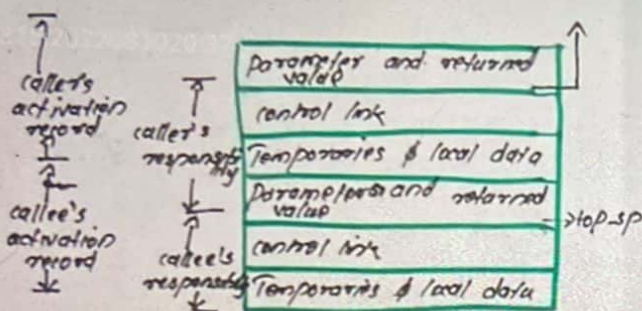 caller's
activation
record
callee's
activation
record
caller's
responsibi
lity
callee's
responsibility
Parameter and returned
value
control link
Temporaries & local data
Parameters and returned
value
control link
Temporaries & local data
top_sp